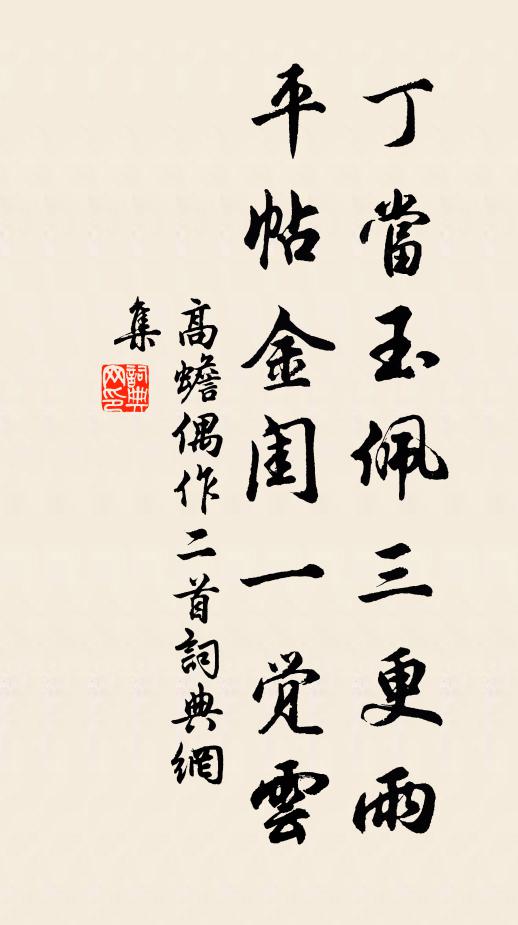 丁當玉佩三更雨
平帖金閨一覺雲
高蟾偶作二首詞典網
集
詞典
网印